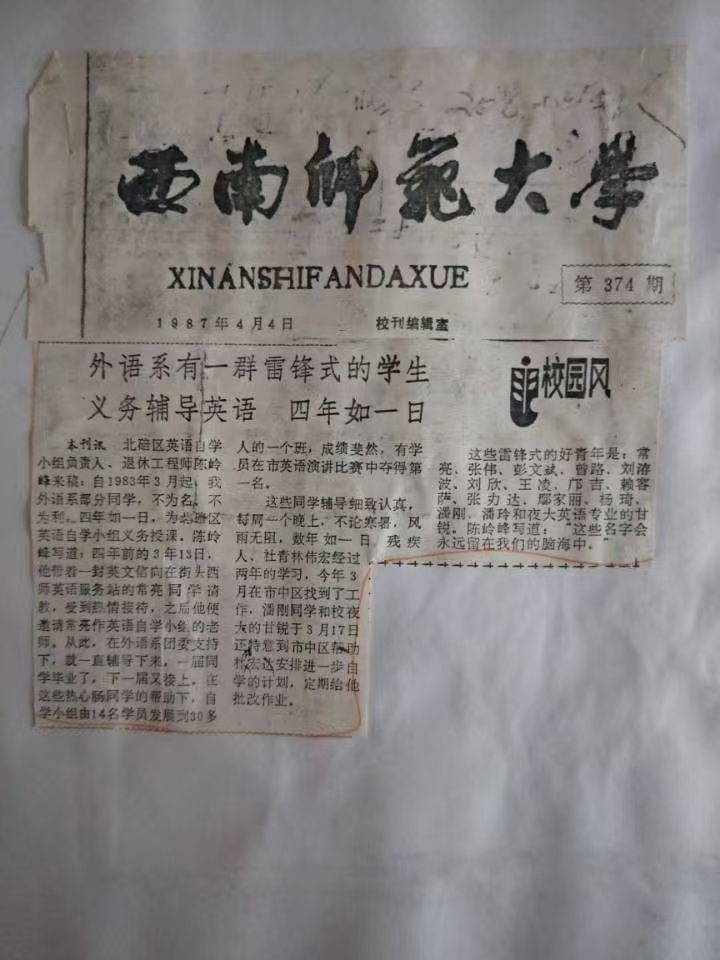 西南师范大学
XINANSHIFANDAXUE
第 374 期
1987年4月4日
校刊编辑室
外语系有一群雷锋式的学生
义务辅导英语 四年如一日
校园风
本刊讯 北碚区英语自学
小组负责人、退休工程师陈岭
峰来稿：自1983年3月起，我
外语系部分同学，不为名、不
为利，四年如一日，为北碚区
英语自学小组义务授课。陈岭
峰写道：四年前的3年13日，
他带着一封英文信向在街头西
师英语服务站的常亮同学请
教，受到热情接待，之后他便
邀请常亮作英语自学小组的老
师。从此，在外语系团委支持
下，就一直辅导下来，一届同
学毕业了，下一届又接上。在
这些热心肠同学的帮助下，自
学小组由14名学员发展到30多
人的一个班，成绩斐然，有学
员在市英语演讲比赛中夺得第
一名。
这些同学辅导细致认真，
每周一个晚上，不论寒暑，风
雨无阻，数年如一日。残疾
人、社青林伟宏经过
两年的学习，今年3
月在市中区找到了工
作，潘刚同学和校夜
大的甘锐于3月17日
还特意到市中区帮助
林宏达安排进一步自
学的计划，定期给他
批改作业。
这些雷锋式的好青年是：常
亮、张伟、彭文斌、曾路、刘
波、刘欣、王凌、邝吉、赖客
萨、张力达、鄢家丽、杨琦、
潘刚、潘玲和夜大英语专业的甘
锐。陈岭峰写道：“这些名字会
永远留在我们的脑海中。”